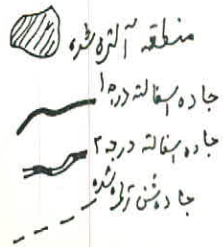 منطقه آلوده شده
جاده اسفالته درجه ۱
جاده اسفالته درجه ۲
جاده شن ریزی شده